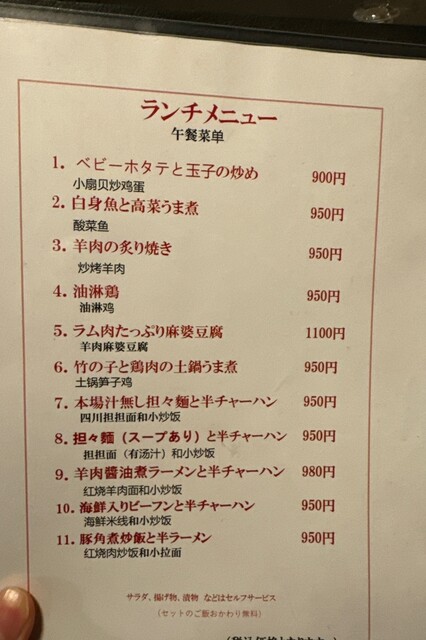 ランチメニュー
午餐菜单
1. ベビーホタテと玉子の炒め 900円
小扇贝炒鸡蛋
2. 白身魚と高菜うま煮 950円
酸菜鱼
3. 羊肉の炙り焼き 950円
炒烤羊肉
4. 油淋鶏 950円
油淋鸡
5. ラム肉たっぷり麻婆豆腐 1100円
羊肉麻婆豆腐
6. 竹の子と鶏肉の土鍋うま煮 950円
土锅笋子鸡
7. 本場汁無し担々麺と半チャーハン 950円
四川担担面和小炒饭
8. 担々麺（スープあり）と半チャーハン 950円
担担面（有汤汁）和小炒饭
9. 羊肉醤油煮ラーメンと半チャーハン 980円
红烧羊肉面和小炒饭
10. 海鮮入りビーフンと半チャーハン 950円
海鲜米线和小炒饭
11. 豚角煮炒飯と半ラーメン 950円
红烧肉炒饭和小拉面
サラダ、揚げ物、漬物 などはセルフサービス
（セットのご飯おかわり無料）